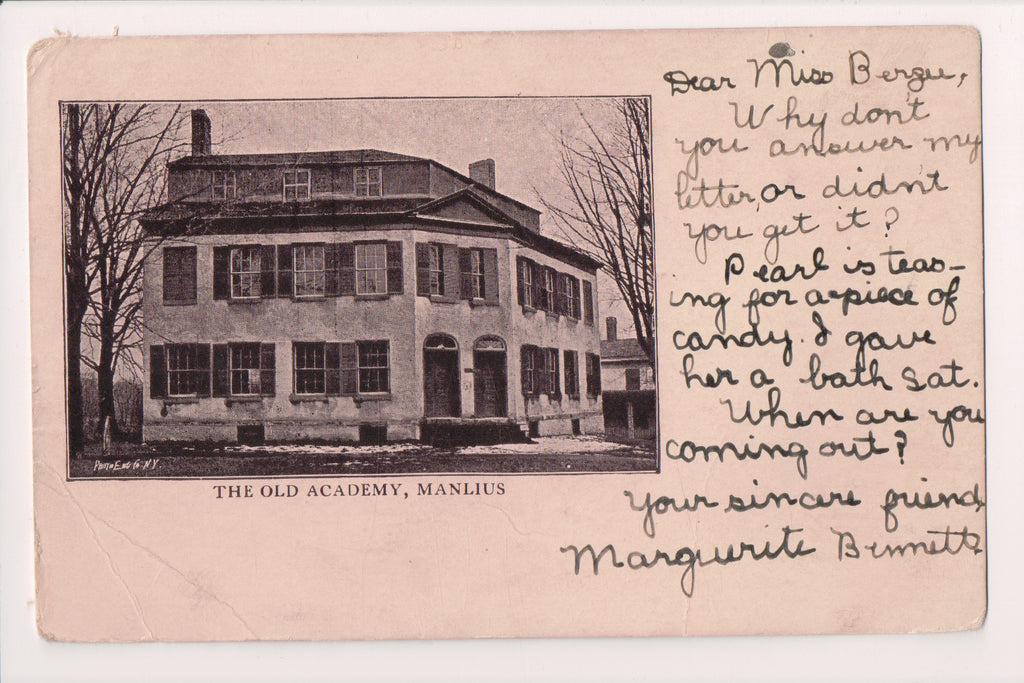 Dear Miss Bergee,
Why don't
you answer my
letter, or didn't
you get it?
Pearl is teas-
ing for a piece of
candy. I gave
her a bath Sat.
When are you
coming out?
Your sincere friend
Marguerite Bennett.
Photo Eng Co. N.Y.
THE OLD ACADEMY, MANLIUS